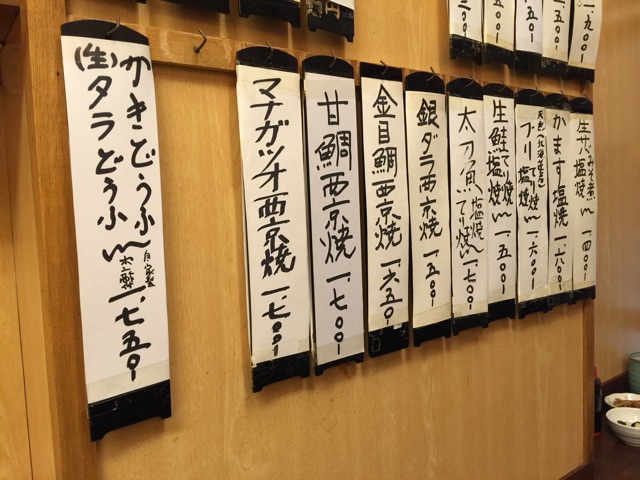 一、九〇〇
かきどうふ
(生)タラどうふ
自家製
一、七五〇
マナガツオ西京焼 一、七〇〇
甘鯛西京焼 一、七〇〇
金目鯛西京焼 一、六五〇
銀ダラ西京焼 一、五〇〇
太刀魚 塩焼 てり焼 一、七〇〇
生鮭 てり焼 塩焼 一、五〇〇
ブリ てり焼 塩焼 一、六〇〇
かます塩焼 一、六〇〇
生さばみそ煮 一、四〇〇